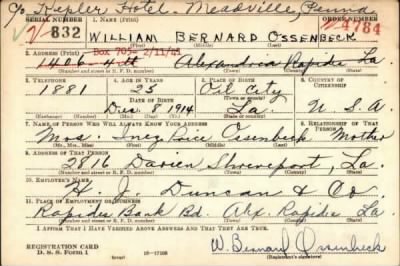 c/o Kepler Hotel- Meadville, Penna
SERIAL NUMBER 1. NAME (Print) ORDER NUMBER
832 WILLIAM BERNARD OSSENBECK 4784
(First) (Middle) (Last)
2. ADDRESS (Print) Box 705- 2/11/41
1406-4th Alexandria Rapides La.
(Number and street or R. F. D. number) (Town) (County) (State)
3. TELEPHONE 4. AGE IN YEARS 5. PLACE OF BIRTH 6. COUNTRY OF CITIZENSHIP
1881 25 Oil City
DATE OF BIRTH (Town or county)
Dec. 8 1914 La. U.S.A
(Exchange) (No.) (Mo.) (Day) (Yr.) (State or country)
7. NAME OF PERSON WHO WILL ALWAYS KNOW YOUR ADDRESS RELATIONSHIP OF THAT PERSON
Mrs. Inez Price Ossenbeck Mother
(Mr., Mrs., Miss) (First) (Middle) (Last)
8. ADDRESS OF THAT PERSON
2816 Darien Shreveport, La.
(Number and street or R. F. D. number) (Town) (County) (State)
9. EMPLOYER'S NAME
H. J. Duncan & Co.
10. PLACE OF EMPLOYMENT OR BUSINESS
Rapides Bank Bd. Alex. Rapides La
(Number and street or R. F. D. number) (Town) (County) (State)
I AFFIRM THAT I HAVE VERIFIED ABOVE ANSWERS AND THAT THEY ARE TRUE.
REGISTRATION CARD
D. S. S. Form 1 16-17105
W. Bernard Ossenbeck
(Registrant's signature)